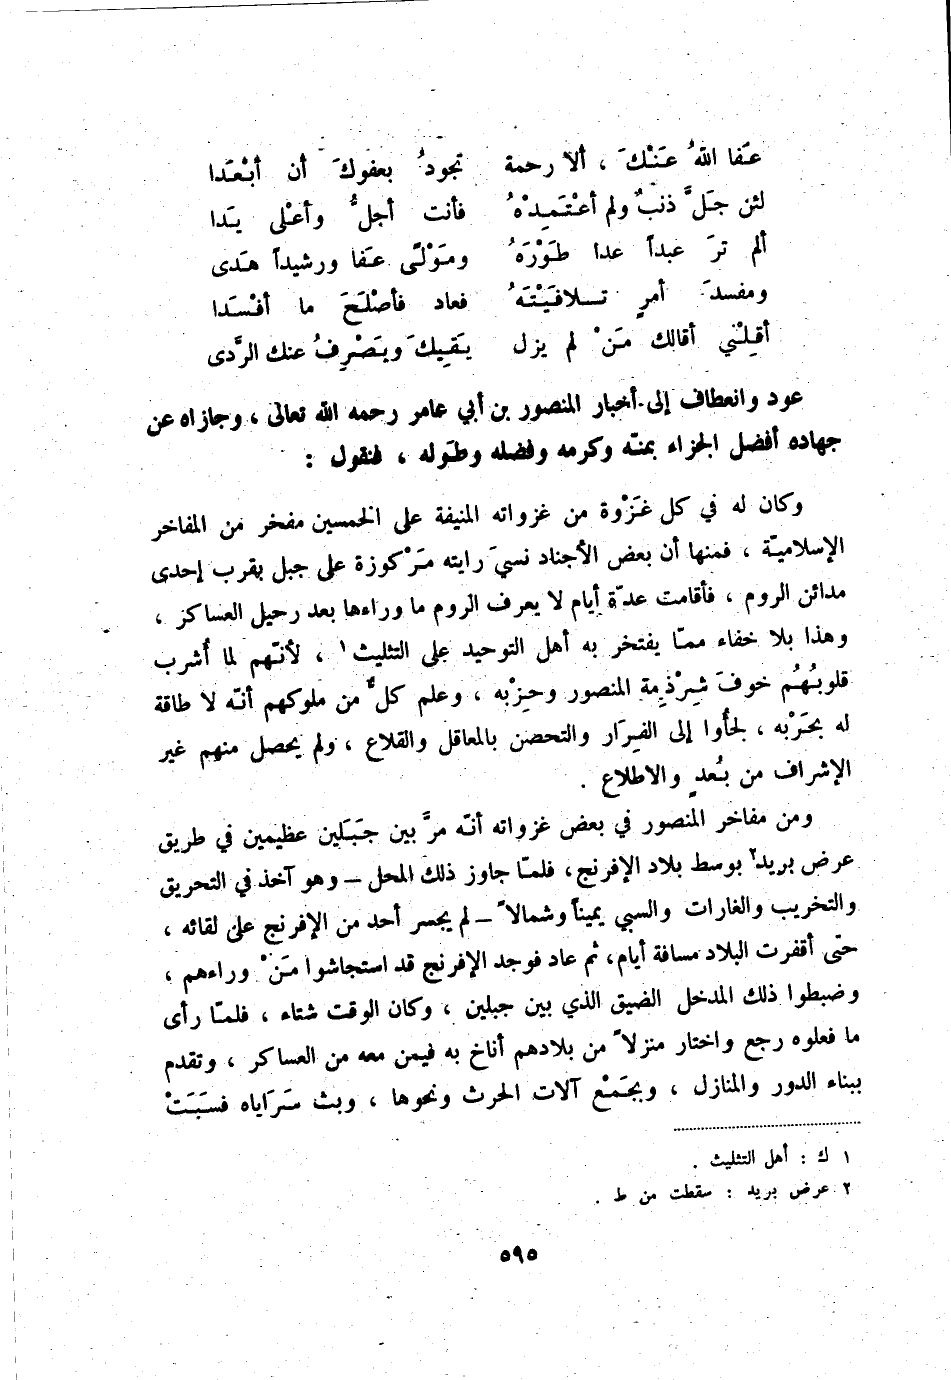 عَفا اللهُ عَنْكَ ، ألا رحمة تجودُ بعفوكَ أن أبْعَدا
لئن جَلَّ ذنبٌ ولم أعْتَمِدْهُ فأنت أجلُّ وأعْلى يَدا
ألم ترَ عبداً عدا طَوْرَهُ ومَوْلًى عَفا ورشيداً هَدى
ومفسدَ أمرٍ تلافَيْتَهُ فعاد فأصْلَحَ ما أفْسَدا
أقِلْني أقالك مَنْ لم يزل يَقيكَ ويَصْرِفُ عنك الرَّدى
عود وانعطاف إلى أخبار المنصور بن أبي عامر رحمه الله تعالى ، وجازاه عن
جهاده أفضل الجزاء بمنّه وكرمه وفضله وطَوله ، فنقول :
وكان له في كل غَزْوة من غزواته المنيفة على الخمسين مفخر من المفاخر
الإسلاميّة ، فمنها أن بعض الأجناد نسيَ رايته مَرْكوزة على جبل بقرب إحدى
مدائن الروم ، فأقامت عدّة أيام لا يعرف الروم ما وراءها بعد رحيل العساكر ،
وهذا بلا خفاء ممّا يفتخر به أهل التوحيد على التثليث١ ، لأنّهم لما أُشرب
قلوبُهُم خوفَ شِرْذِمة المنصور وحِزْبه ، وعلم كلٌّ من ملوكهم أنّه لا طاقة
له بحَرْبه ، لجأوا إلى الفِرَار والتحصن بالمعاقل والقلاع ، ولم يحصل منهم غير
الإشراف من بُعدٍ والاطلاع .
ومن مفاخر المنصور في بعض غزواته أنّه مرَّ بين جَبَلين عظيمين في طريق
عرض بريد٢ بوسط بلاد الإفرنج ، فلمّا جاوز ذلك المحل – وهو آخذ في التحريق
والتخريب والغارات والسبي يميناً وشمالاً – لم يجسر أحد من الإفرنج على لقائه ،
حتّى أقفرت البلاد مسافة أيام ، ثم عاد فوجد الإفرنج قد استجاشوا مَنْ وراءهم ،
وضبطوا ذلك المدخل الضيق الذي بين جبلين ، وكان الوقت شتاء ، فلمّا رأى
ما فعلوه رجع واختار منزلاً من بلادهم أناخ به فيمن معه من العساكر ، وتقدم
ببناء الدور والمنازل ، وبجَمْع آلات الحرث ونحوها ، وبث سَرَاياه فسَبَتْ
١ ك : أهل التثليث .
٢ عرض بريد : سقطت من ط .
٥٩٥